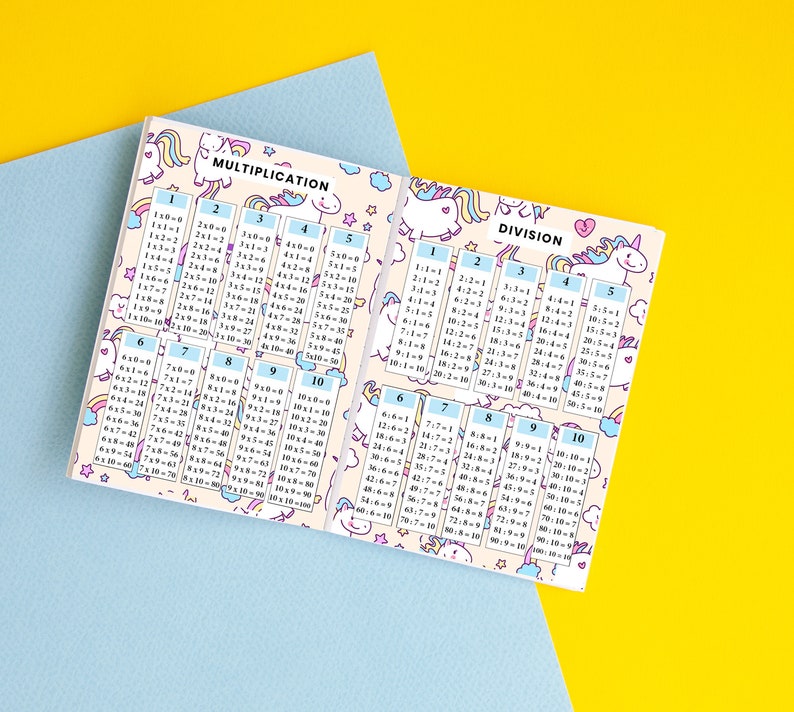 MULTIPLICATION
1
1 x 0 = 0
1 x 1 = 1
1 x 2 = 2
1 x 3 = 3
1 x 4 = 4
1 x 5 = 5
1 x 6 = 6
1 x 7 = 7
1 x 8 = 8
1 x 9 = 9
1 x 10 = 10
2
2 x 0 = 0
2 x 1 = 2
2 x 2 = 4
2 x 3 = 6
2 x 4 = 8
2 x 5 = 10
2 x 6 = 12
2 x 7 = 14
2 x 8 = 16
2 x 9 = 18
2 x 10 = 20
3
3 x 0 = 0
3 x 1 = 3
3 x 2 = 6
3 x 3 = 9
3 x 4 = 12
3 x 5 = 15
3 x 6 = 18
3 x 7 = 21
3 x 8 = 24
3 x 9 = 27
3 x 10 = 30
4
4 x 0 = 0
4 x 1 = 4
4 x 2 = 8
4 x 3 = 12
4 x 4 = 16
4 x 5 = 20
4 x 6 = 24
4 x 7 = 28
4 x 8 = 32
4 x 9 = 36
4 x 10 = 40
5
5 x 0 = 0
5 x 1 = 5
5 x 2 = 10
5 x 3 = 15
5 x 4 = 20
5 x 5 = 25
5 x 6 = 30
5 x 7 = 35
5 x 8 = 40
5 x 9 = 45
5x10 = 50
6
6 x 0 = 0
6 x 1 = 6
6 x 2 = 12
6 x 3 = 18
6 x 4 = 24
6 x 5 = 30
6 x 6 = 36
6 x 7 = 42
6 x 8 = 48
6 x 9 = 54
6 x 10 = 60
7
7 x 0 = 0
7 x 1 = 7
7 x 2 = 14
7 x 3 = 21
7 x 4 = 28
7 x 5 = 35
7 x 6 = 42
7 x 7 = 49
7 x 8 = 56
7 x 9 = 63
7 x 10 = 70
8
8 x 0 = 0
8 x 1 = 8
8 x 2 = 16
8 x 3 = 24
8 x 4 = 32
8 x 5 = 40
8 x 6 = 48
8 x 7 = 56
8 x 8 = 64
8 x 9 = 72
8 x 10 = 80
9
9 x 0 = 0
9 x 1 = 9
9 x 2 = 18
9 x 3 = 27
9 x 4 = 36
9 x 5 = 45
9 x 6 = 54
9 x 7 = 63
9 x 8 = 72
9 x 9 = 81
9 x 10 = 90
10
10 x 0 = 0
10 x 1 = 10
10 x 2 = 20
10 x 3 = 30
10 x 4 = 40
10 x 5 = 50
10 x 6 = 60
10 x 7 = 70
10 x 8 = 80
10 x 9 = 90
10 x 10 =100
DIVISION
1
1 : 1 = 1
2 : 1 = 2
3 : 1 = 3
4 : 1 = 4
5 : 1 = 5
6 : 1 = 6
7 : 1 = 7
8 : 1 = 8
9 : 1 = 9
10 : 1 = 10
2
2 : 2 = 1
4 : 2 = 2
6 : 2 = 3
8 : 2 = 4
10 : 2 = 5
12 : 2 = 6
14 : 2 = 7
16 : 2 = 8
18 : 2 = 9
20 : 2 = 10
3
3 : 3 = 1
6 : 3 = 2
9 : 3 = 3
12 : 3 = 4
15 : 3 = 5
18 : 3 = 6
21 : 3 = 7
24 : 3 = 8
27 : 3 = 9
30 : 3 = 10
4
4 : 4 = 1
8 : 4 = 2
12 : 4 = 3
16 : 4 = 4
20 : 4 = 5
24 : 4 = 6
28 : 4 = 7
32 : 4 = 8
36 : 4 = 9
40 : 4 = 10
5
5 : 5 = 1
10 : 5 = 2
15 : 5 = 3
20 : 5 = 4
25 : 5 = 5
30 : 5 = 6
35 : 5 = 7
40 : 5 = 8
45 : 5 = 9
50 : 5 = 10
6
6 : 6 = 1
12 : 6 = 2
18 : 6 = 3
24 : 6 = 4
30 : 6 = 5
36 : 6 = 6
42 : 6 = 7
48 : 6 = 8
54 : 6 = 9
60 : 6 = 10
7
7 : 7 = 1
14 : 7 = 2
21 : 7 = 3
28 : 7 = 4
35 : 7 = 5
42 : 7 = 6
49 : 7 = 7
56 : 7 = 8
63 : 7 = 9
70 : 7 = 10
8
8 : 8 = 1
16 : 8 = 2
24 : 8 = 3
32 : 8 = 4
40 : 8 = 5
48 : 8 = 6
56 : 8 = 7
64 : 8 = 8
72 : 8 = 9
80 : 8 = 10
9
9 : 9 = 1
18 : 9 = 2
27 : 9 = 3
36 : 9 = 4
45 : 9 = 5
54 : 9 = 6
63 : 9 = 7
72 : 9 = 8
81 : 9 = 9
90 : 9 = 10
10
10 : 10 = 1
20 : 10 = 2
30 : 10 = 3
40 : 10 = 4
50 : 10 = 5
60 : 10 = 6
70 : 10 = 7
80 : 10 = 8
90 : 10 = 9
100 : 10 = 10